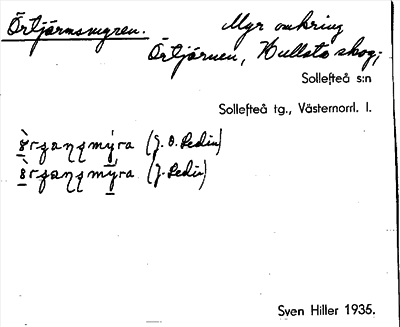 Örtjärnsmyren. Myr omkring
Örtjärnen, Hullsta skog;
Sollefteå s:n
Sollefteå tg., Västernorrl. l.
(J. O. Pedin)
(J. Pedin)
Sven Hiller 1935.